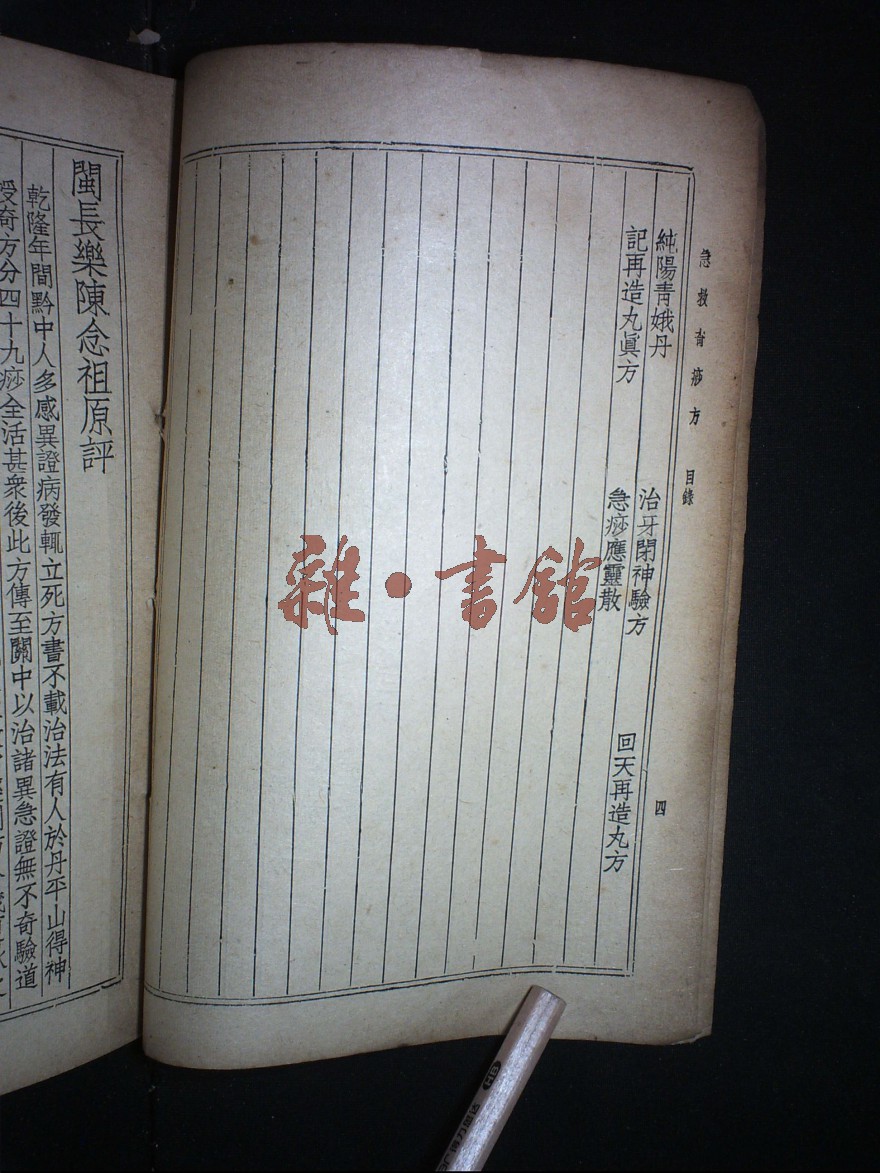 急救奇痧方 目錄 四
純陽青娥丹 治牙閉神驗方 回天再造丸方
記再造丸眞方 急痧應靈散
閩長樂陳念祖原評
乾隆年間黔中人多感異證病發輒立死方書不載治法有人於丹平山得神
授奇方分四十九痧全活甚衆後此方傳至關中以治諸異急證無不奇驗道
雜·書館
HB